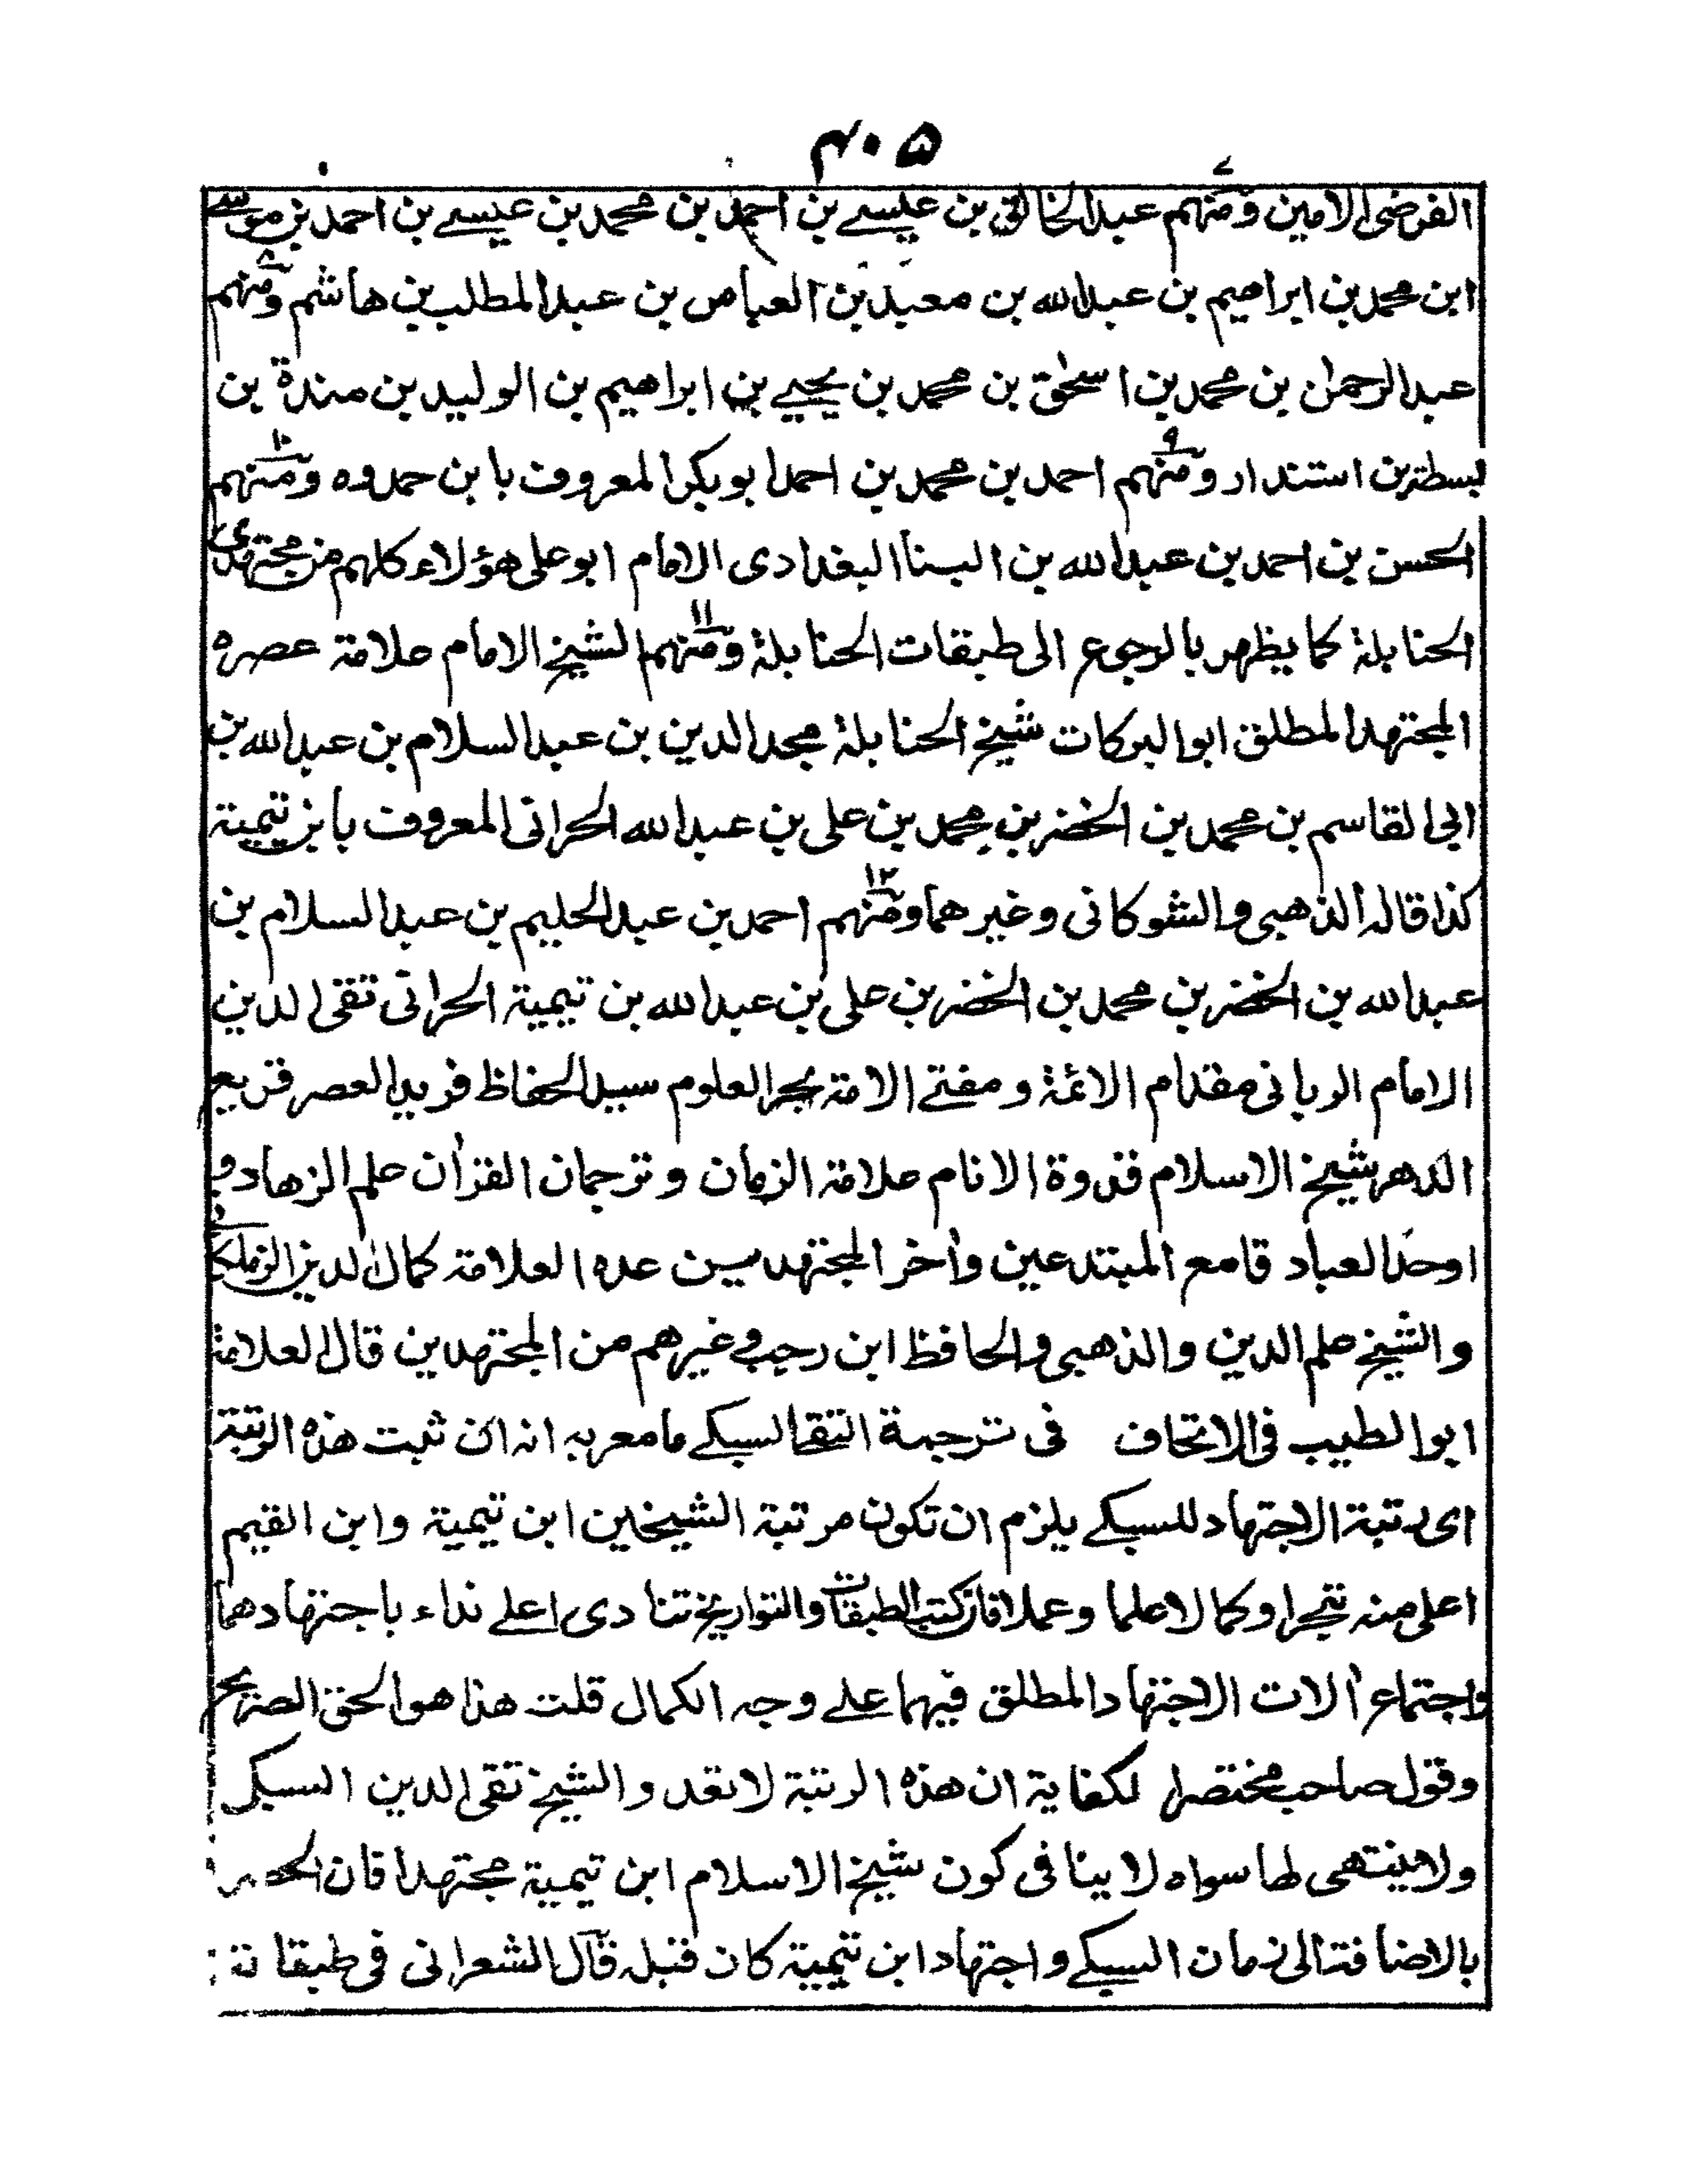 ۴۰۵
الفرضى الامين ومنهم۷ عبدالخالق بن عيسے بن احمد بن محمد بن عيسے بن احمد بن موسے
ابن محمد بن ابراهيم بن عبدالله بن معبد بن العباس بن عبدالمطلب بن هاشم ومنهم۸
عبدالرحمٰن بن محمد بن اسحٰق بن محمد بن يحيے بن ابراهيم بن الوليد بن مندة بن
بسطة بن استندار ومنهم۹ احمد بن محمد بن احمد ابوبكر المعروف بابن حمدوه ومنهم۱۰
الحسن بن احمد بن عبدالله بن البنا البغدادى الامام ابوعلى هؤلاء كلهم من مجتهدى
الحنابلة كما يظهر بالرجوع الى طبقات الحنابلة ومنهم۱۱ الشيخ الامام علامة عصره
المجتهد المطلق ابوالبركات شيخ الحنابلة مجدالدين بن عبدالسلام بن عبدالله بن
ابى القاسم بن محمد بن الخضر بن محمد بن على بن عبدالله الحرانى المعروف بابن تيمية
كذا قاله الذهبى والشوكانى وغيرهما ومنهم۱۲ احمد بن عبدالحليم بن عبدالسلام بن
عبدالله بن الخضر بن محمد بن الخضر بن على بن عبدالله بن تيمية الحرانى تقى الدين
الامام الربانى مقدام الائمة ومفتے الامة بحر العلوم سيد الحفاظ فريد العصر قريع
الدهر شيخ الاسلام قدوة الانام علامة الزمان وترجمان القرأن علم الزهاد و
اوحد العباد قامع المبتدعين وأخر المجتهدين عده العلامة كمال الدين الزملكا
والشيخ علم الدين والذهبى والحافظ ابن رجب وغيرهم من المجتهدين قال العلامة
ابوالطيب فى الاتحاف فى ترجمة التقى السبكے مامعربه انه ان ثبت هذه الرتبة
اى رتبة الاجتهاد للسبكے يلزم ان تكون مرتبة الشيخين ابن تيمية وابن القيم
اعلى منه تبحرا وكمالا علما وعملا فان كتب الطبقات والتواريخ تنادى اعلے نداء باجتهادهما
واجتماع ألات الاجتهاد المطلق فيهما علے وجه الكمال قلت هذا هو الحق الصريح
وقول صاحب مختصر الكفاية ان هذه الرتبة لا تعد والشيخ تقى الدين السبكى
ولا ينتهى لها سواه لا ينافى كون شيخ الاسلام ابن تيمية مجتهدا فان الحصر
بالاضافة الى زمان السبكے واجتهاد ابن تيمية كان قبله قال الشعرانى فى طبقاته